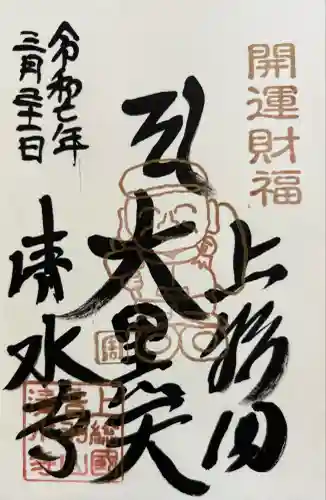 開運財福
上総国
大黒天
清水寺
令和七年
三月二十一日
上総國
音羽山
清水寺